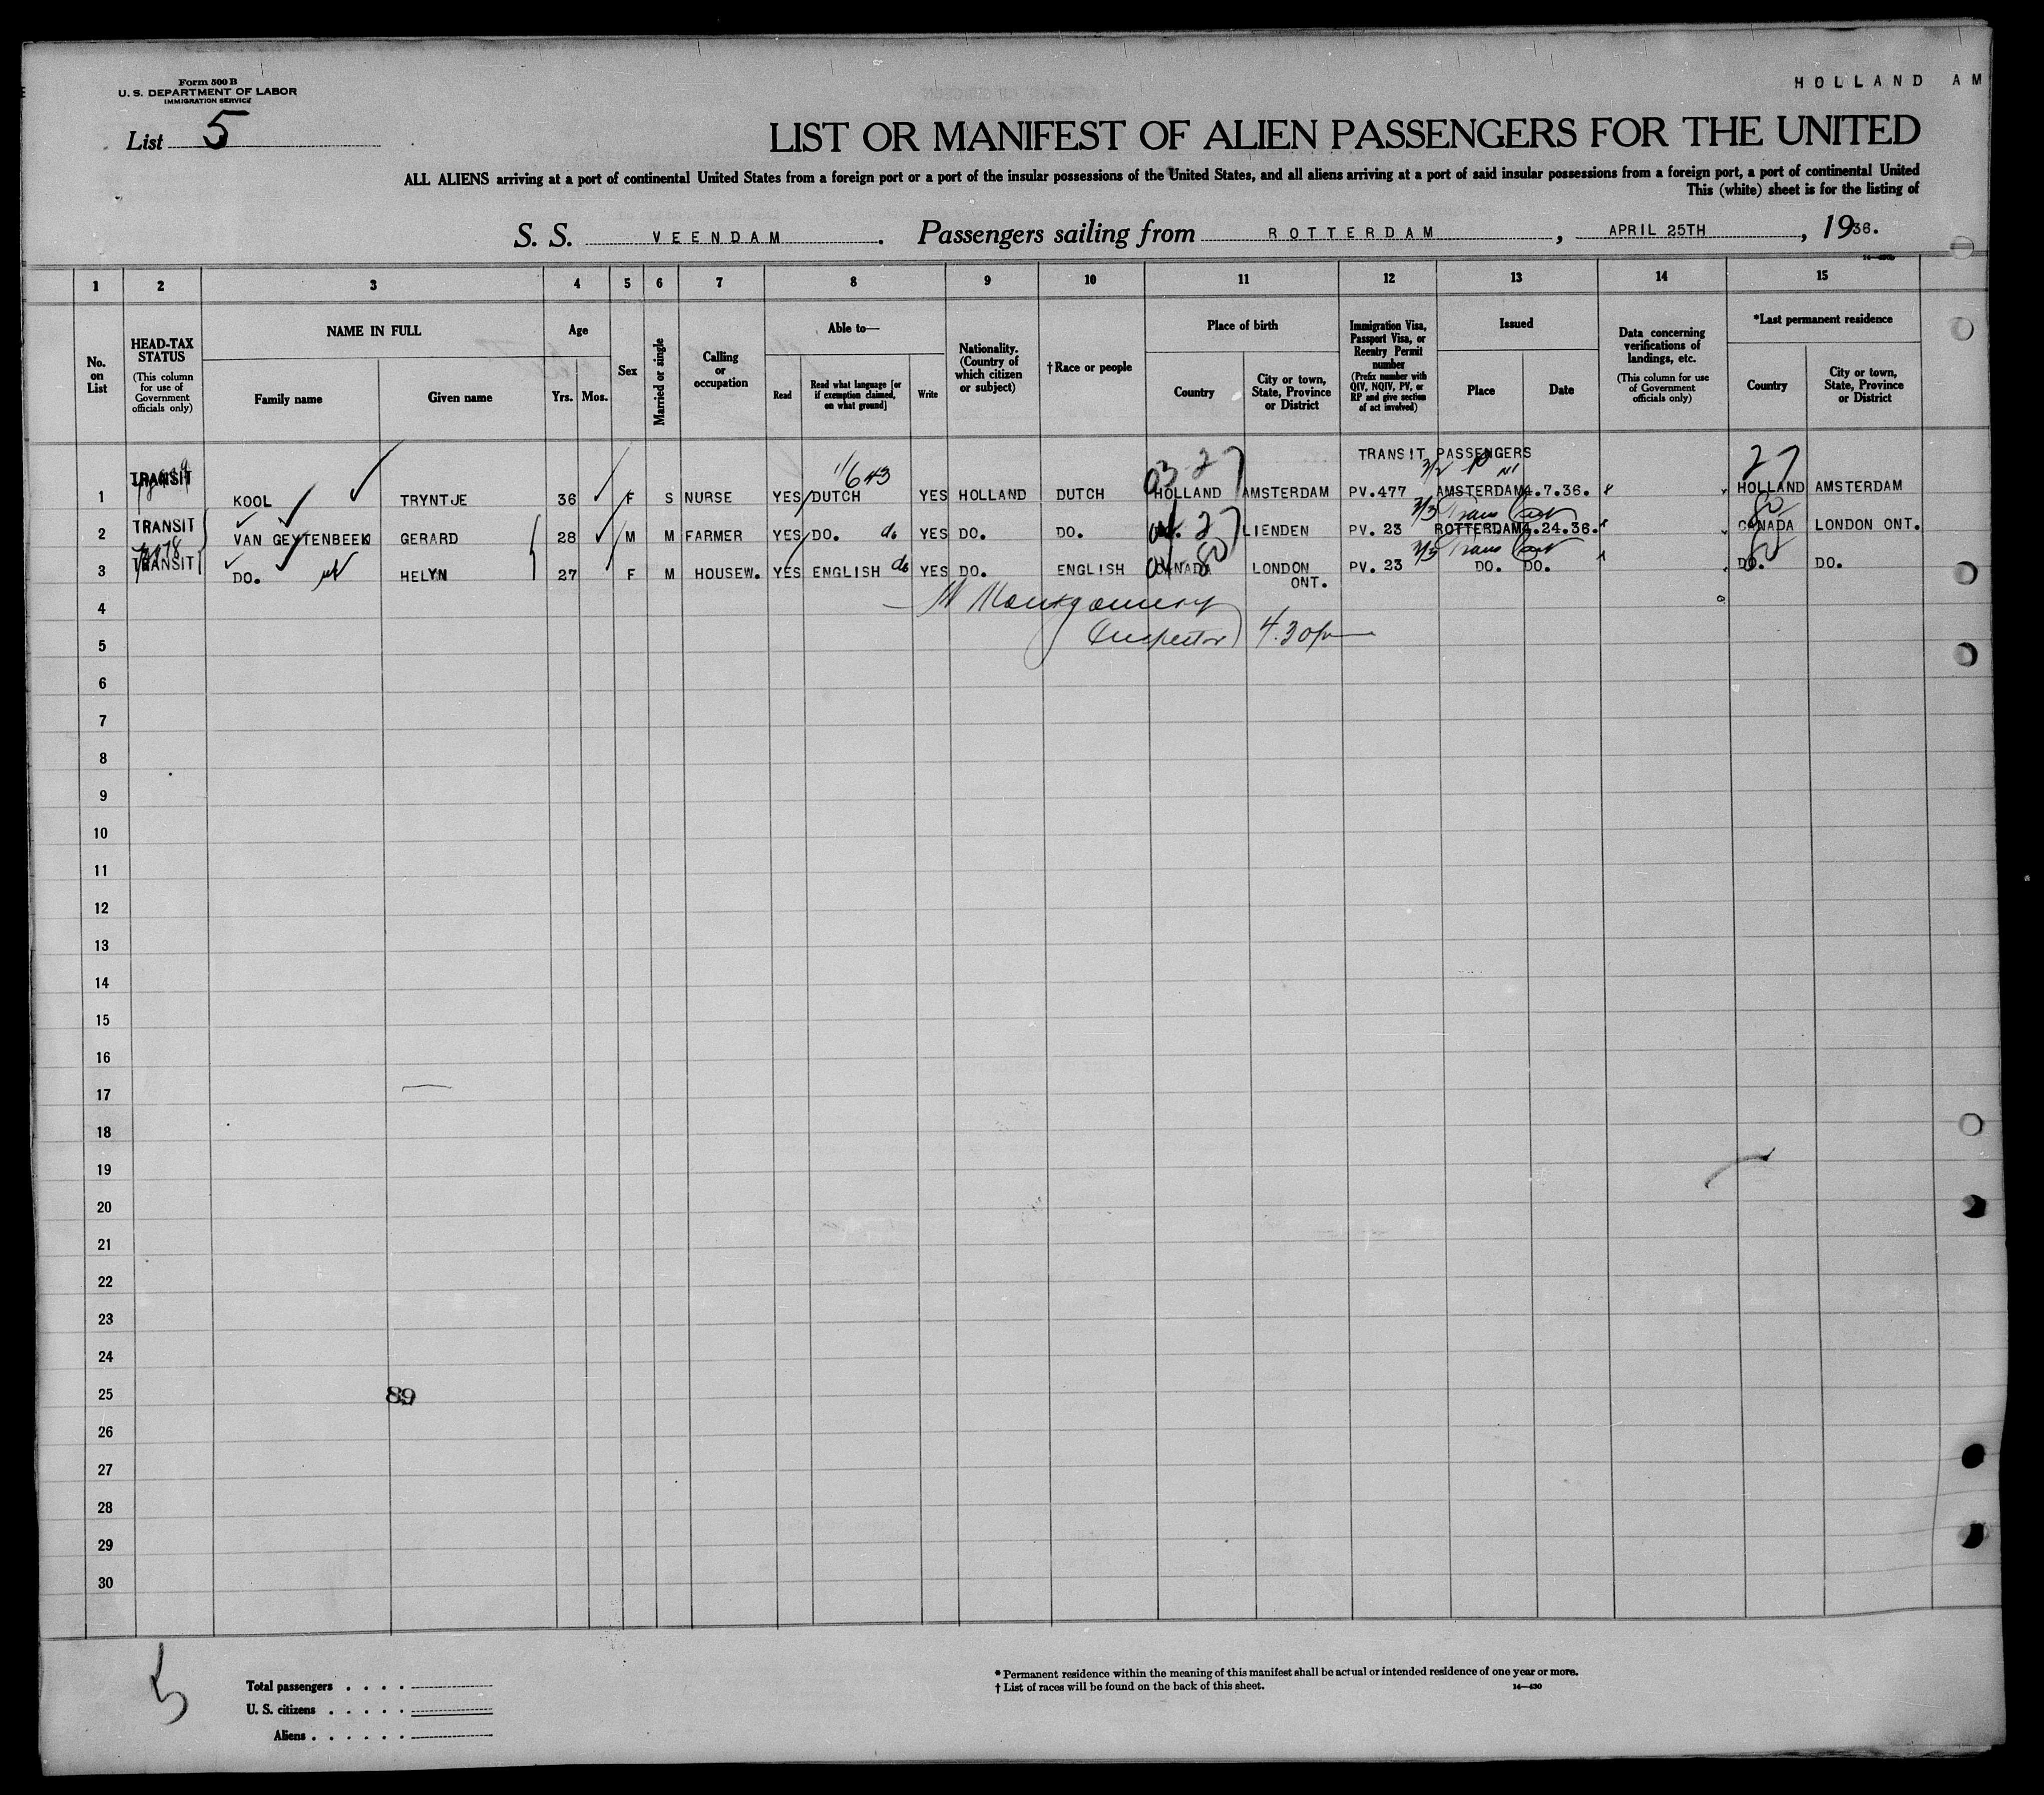 Form 500 B
U. S. DEPARTMENT OF LABOR
IMMIGRATION SERVICE
HOLLAND AM
List 5
LIST OR MANIFEST OF ALIEN PASSENGERS FOR THE UNITED
ALL ALIENS arriving at a port of continental United States from a foreign port or a port of the insular possessions of the United States, and all aliens arriving at a port of said insular possessions from a foreign port, a port of continental United
This (white) sheet is for the listing of
S. S. VEENDAM. Passengers sailing from ROTTERDAM, APRIL 25TH, 1936.
1 2 3 4 5 6 7 8 9 10 11 12 13 14 15
No. on List
HEAD-TAX STATUS (This column for use of Government officials only)
NAME IN FULL
Family name
Given name
Age
Yrs. Mos.
Sex
Married or single
Calling or occupation
Able to—
Read
Read what language [or if exemption claimed, on what ground]
Write
Nationality. (Country of which citizen or subject)
†Race or people
Place of birth
Country
City or town, State, Province or District
Immigration Visa, Passport Visa, or Reentry Permit number (Prefix number with QIV, NQIV, PV, or RP and give section of act involved)
Issued
Place
Date
Data concerning verifications of landings, etc. (This column for use of Government officials only)
*Last permanent residence
Country
City or town, State, Province or District
TRANSIT PASSENGERS
1 TRANSIT KOOL TRYNTJE 36 F S NURSE YES DUTCH YES HOLLAND DUTCH HOLLAND AMSTERDAM PV.477 AMSTERDAM 4.7.36. HOLLAND AMSTERDAM
2 TRANSIT VAN GEYTENBEEK GERARD 28 M M FARMER YES DO. do YES DO. DO. LIENDEN PV. 23 ROTTERDAM 4.24.36. CANADA LONDON ONT.
3 TRANSIT DO. HELYN 27 F M HOUSEW. YES ENGLISH do YES DO. ENGLISH CANADA LONDON ONT. PV. 23 DO. DO. DO. DO.
4 Montgomery
5 Inspector 4.30
6
7
8
9
10
11
12
13
14
15
16
17
18
19
20
21
22
23
24
25 89
26
27
28
29
30
5
Total passengers
U. S. citizens
Aliens
* Permanent residence within the meaning of this manifest shall be actual or intended residence of one year or more.
† List of races will be found on the back of this sheet.
14—430